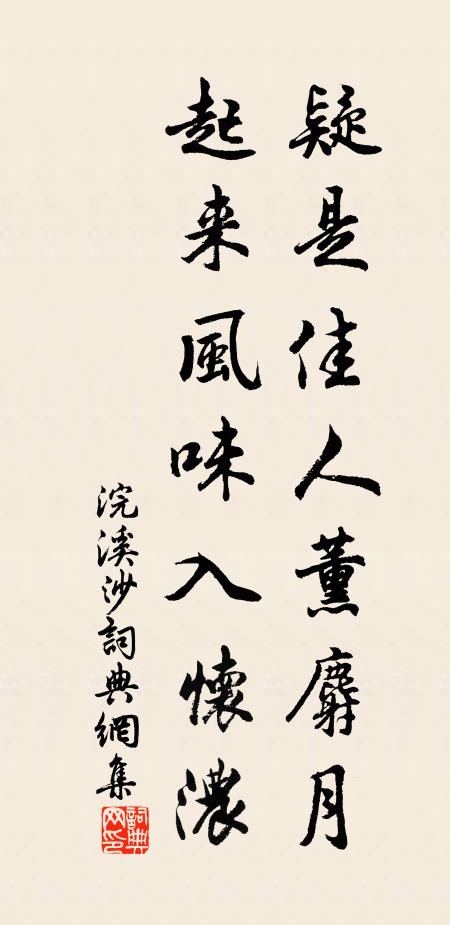 疑是佳人薰麝月
起来風味入懷濃
浣溪沙詞典網集
詞典网印